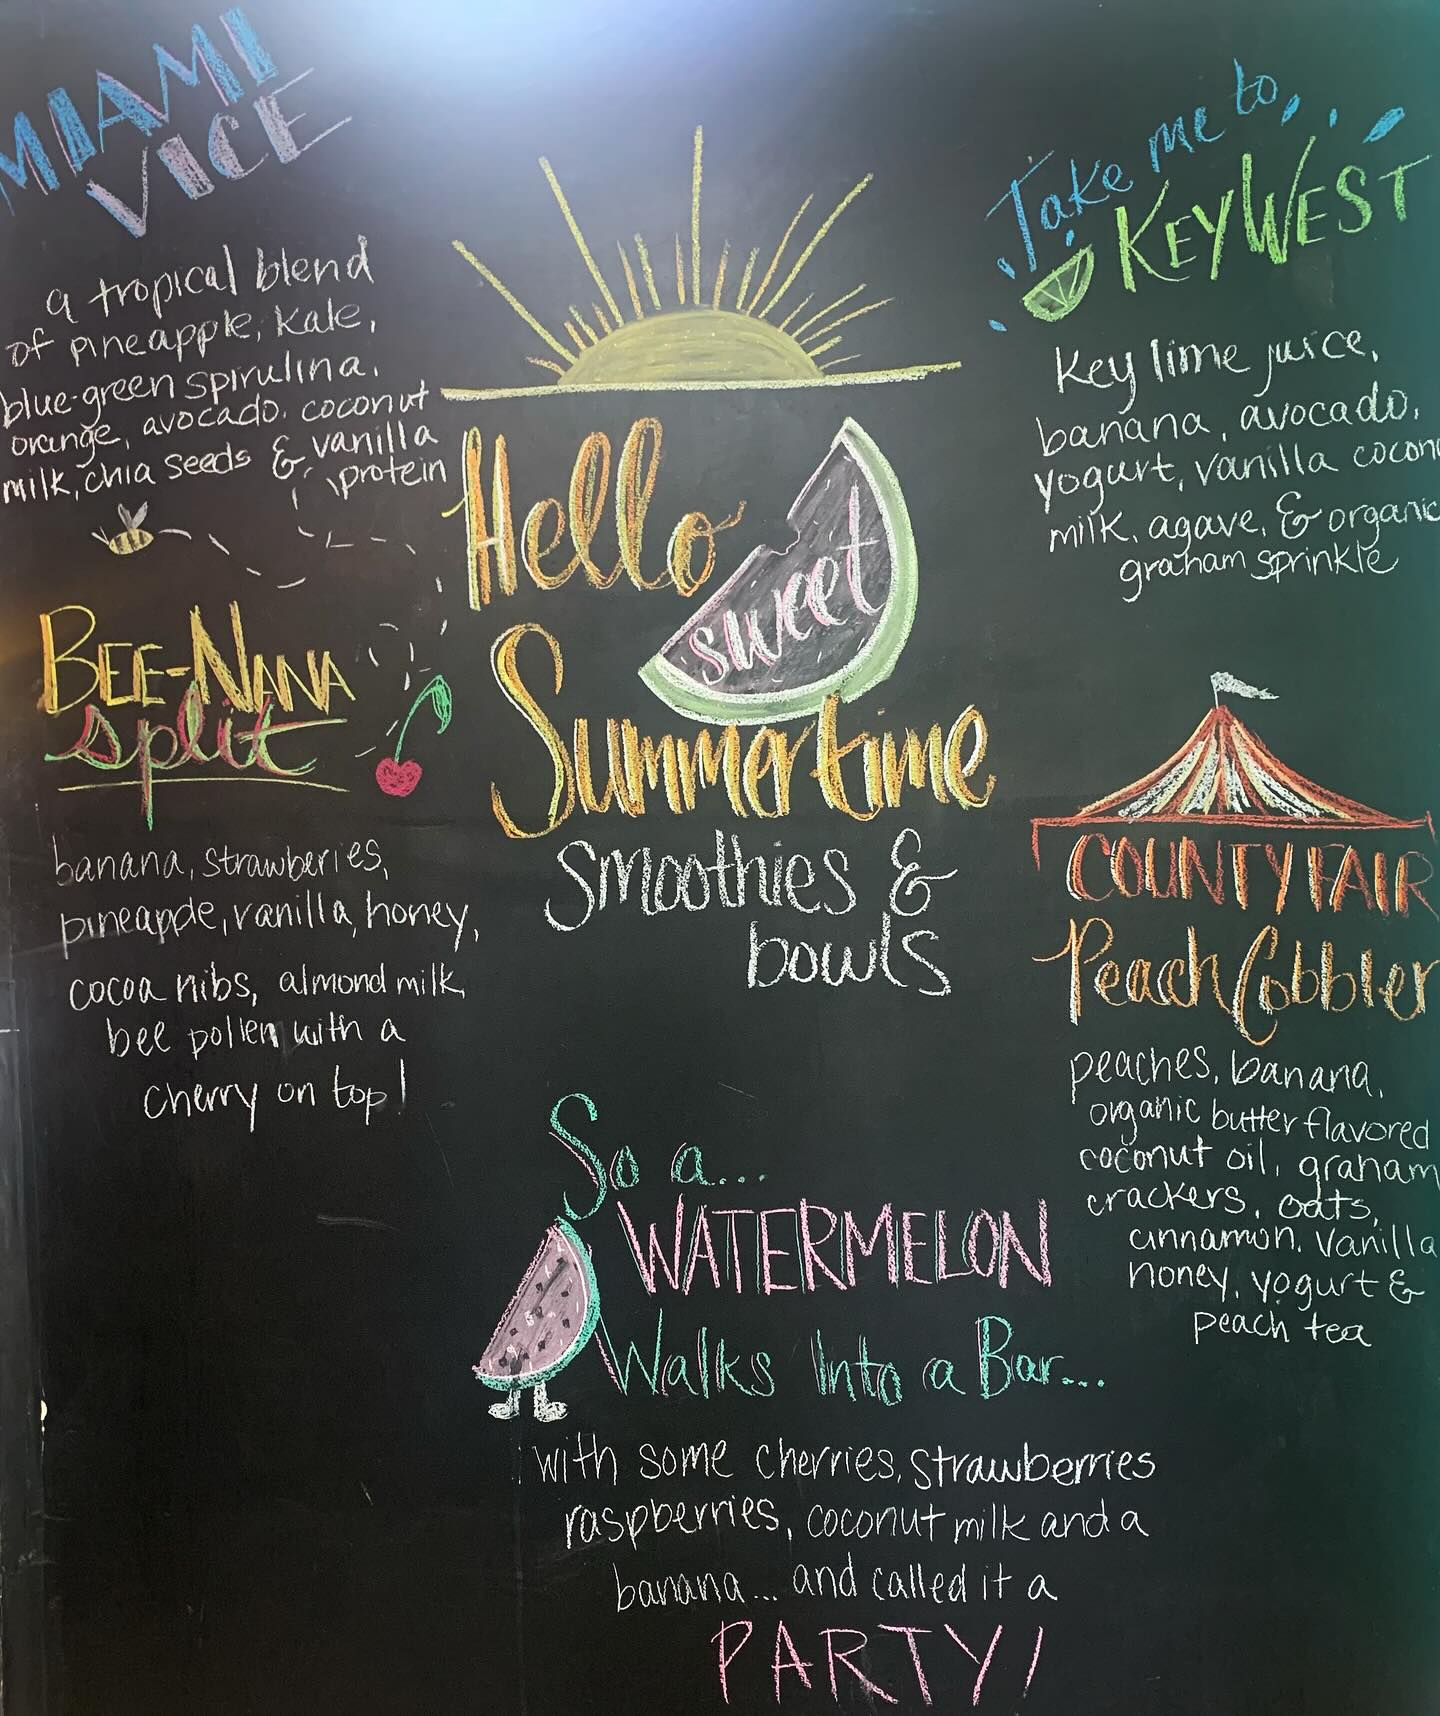 MIAMI
VICE
a tropical blend
of pineapple, kale,
blue-green spirulina,
orange, avocado, coconut
milk, chia seeds & vanilla
protein
BEE-NANA
split
banana, strawberries,
pineapple, vanilla, honey,
cocoa nibs, almond milk,
bee pollen with a
cherry on top!
Hello
sweet
Summertime
Smoothies &
bowls
Take me to
KEY WEST
Key lime juice,
banana, avocado,
yogurt, vanilla cocon
milk, agave, & organic
graham sprinkle
COUNTY FAIR
Peach Cobbler
peaches, banana,
organic butter flavored
coconut oil, graham
crackers, oats,
cinnamon, vanilla
honey, yogurt &
peach tea
So a...
WATERMELON
Walks Into a Bar...
with some cherries, strawberries
raspberries, coconut milk and a
banana... and called it a
PARTY!